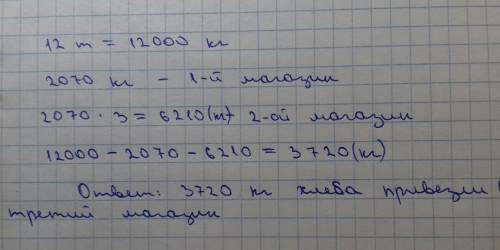 12 т = 12000 кг
2070 кг - 1-й магазин
2070 · 3 = 6210 (кг) 2-ой магазин
12000 - 2070 - 6210 = 3720 (кг)
Ответ: 3720 кг хлеба привезли в
третий магазин